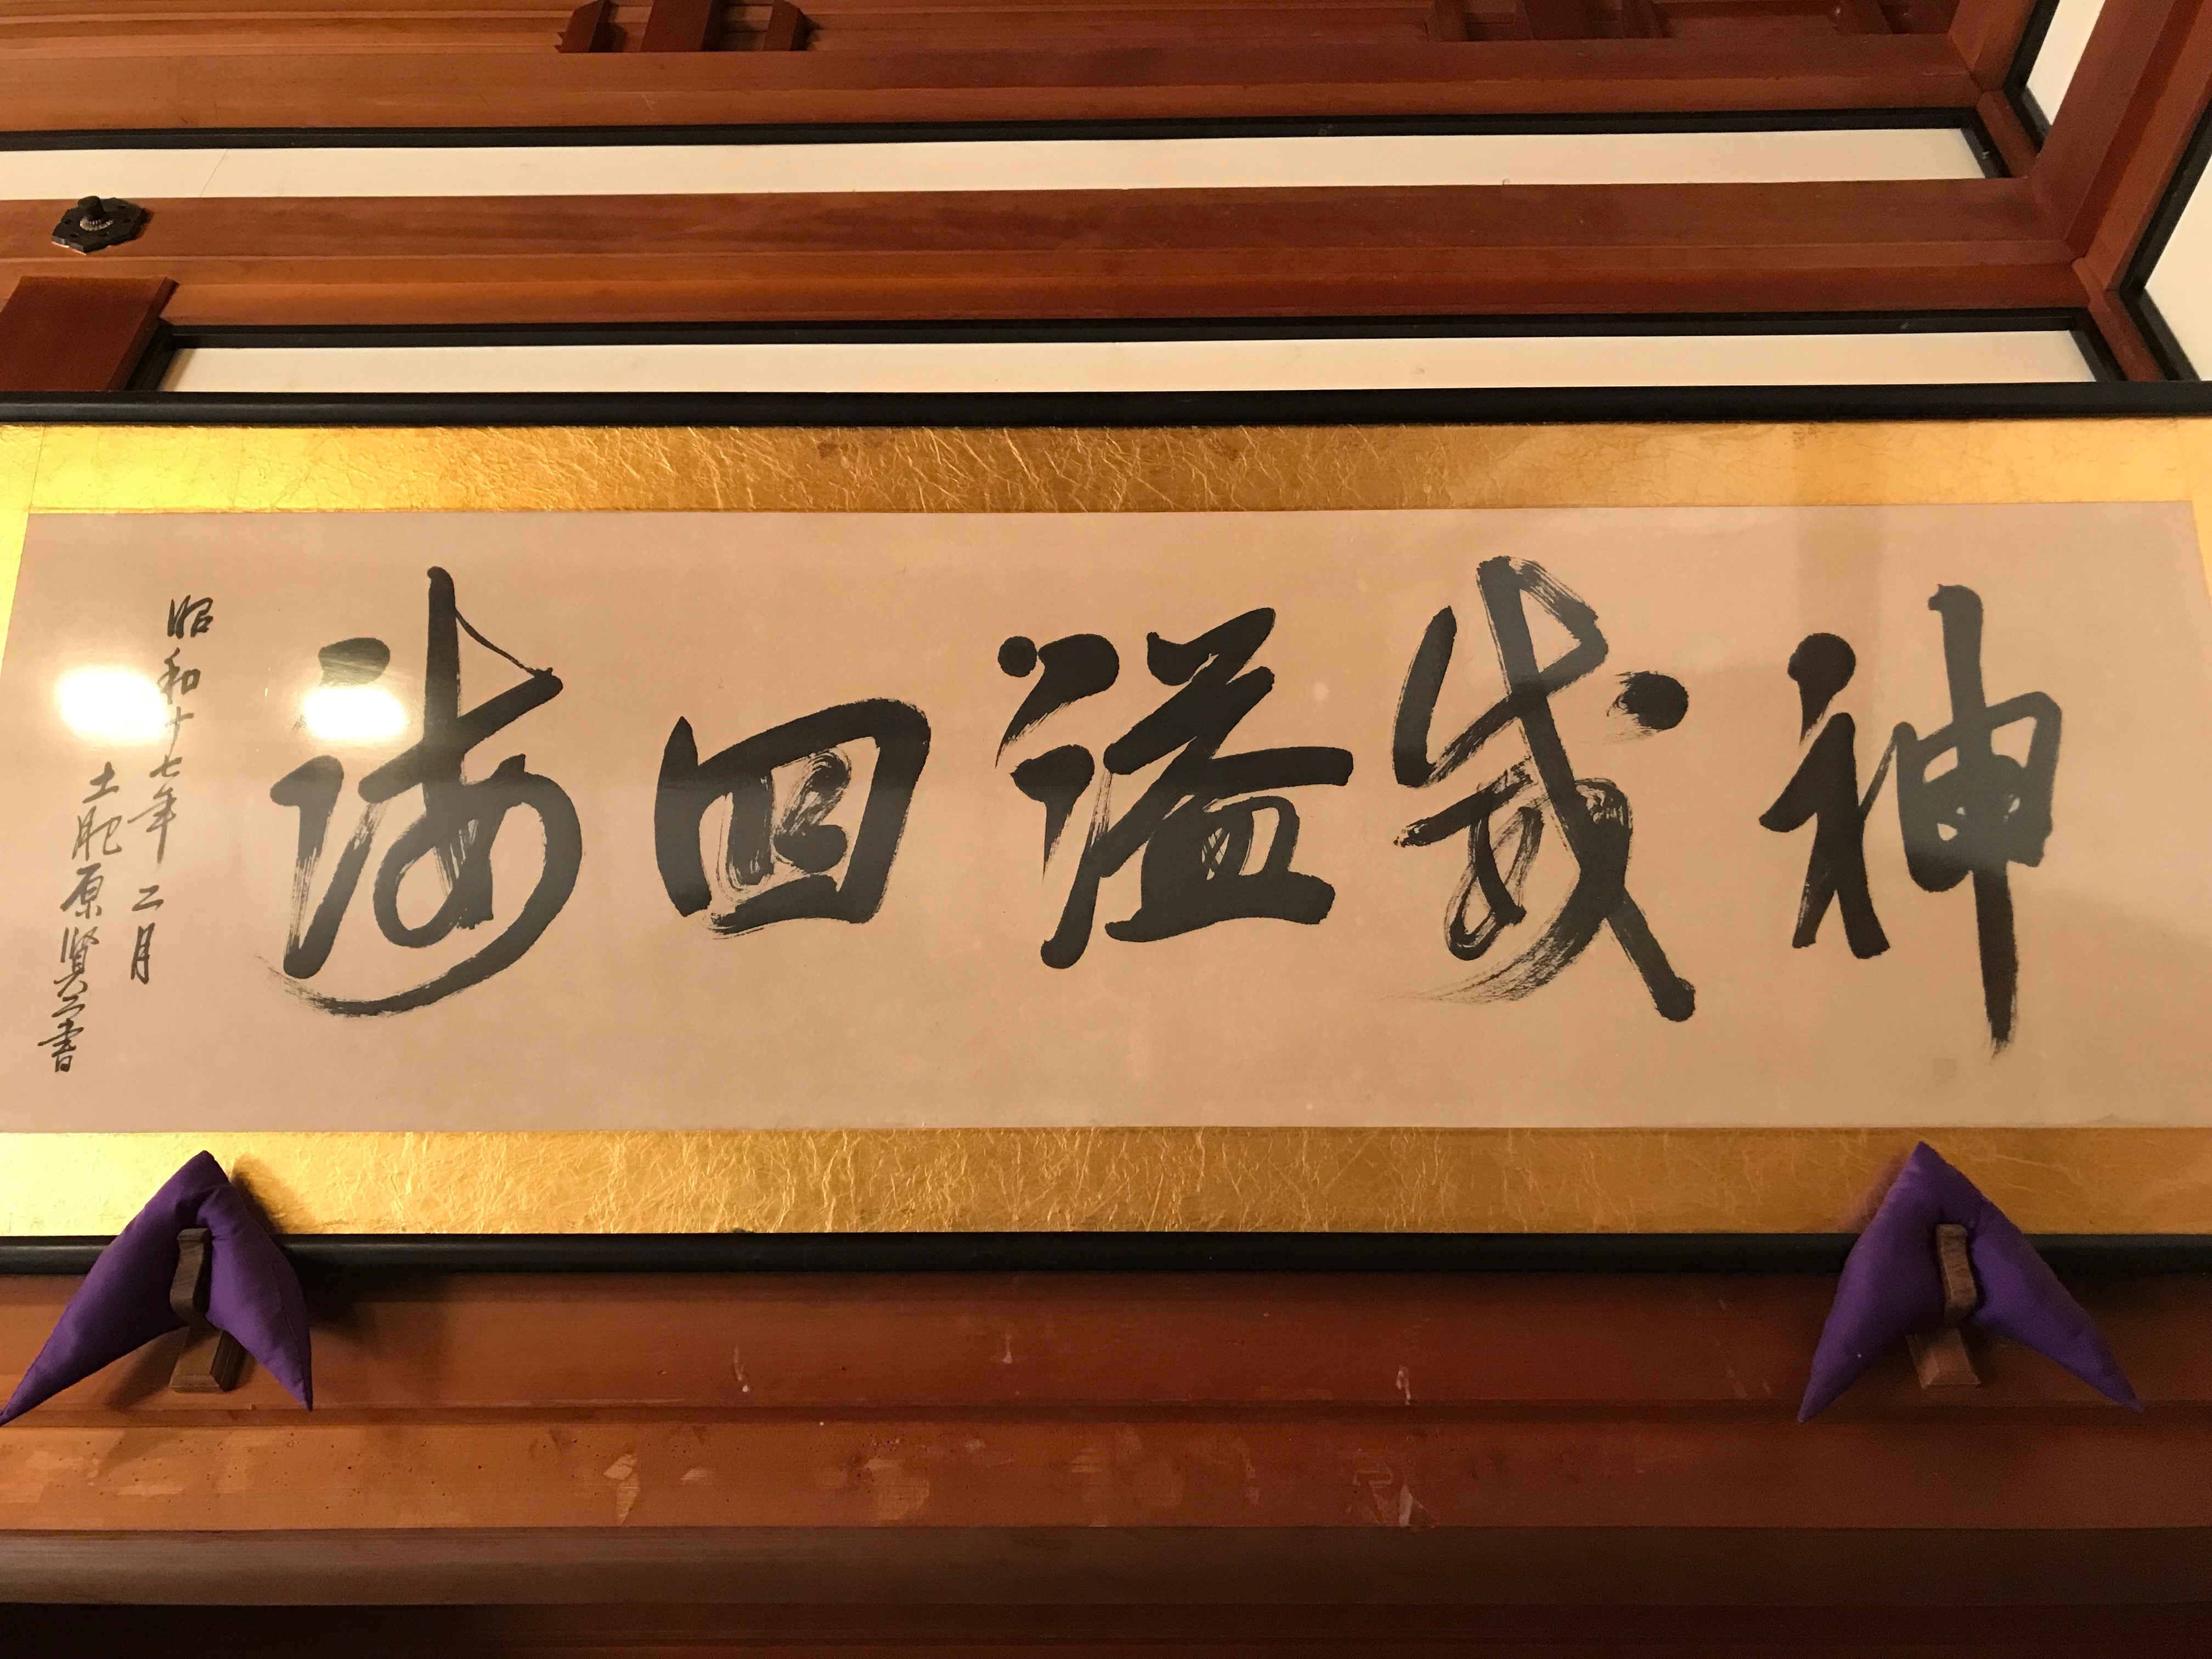 神威溢四海
昭和十七年二月
土肥原賢二書